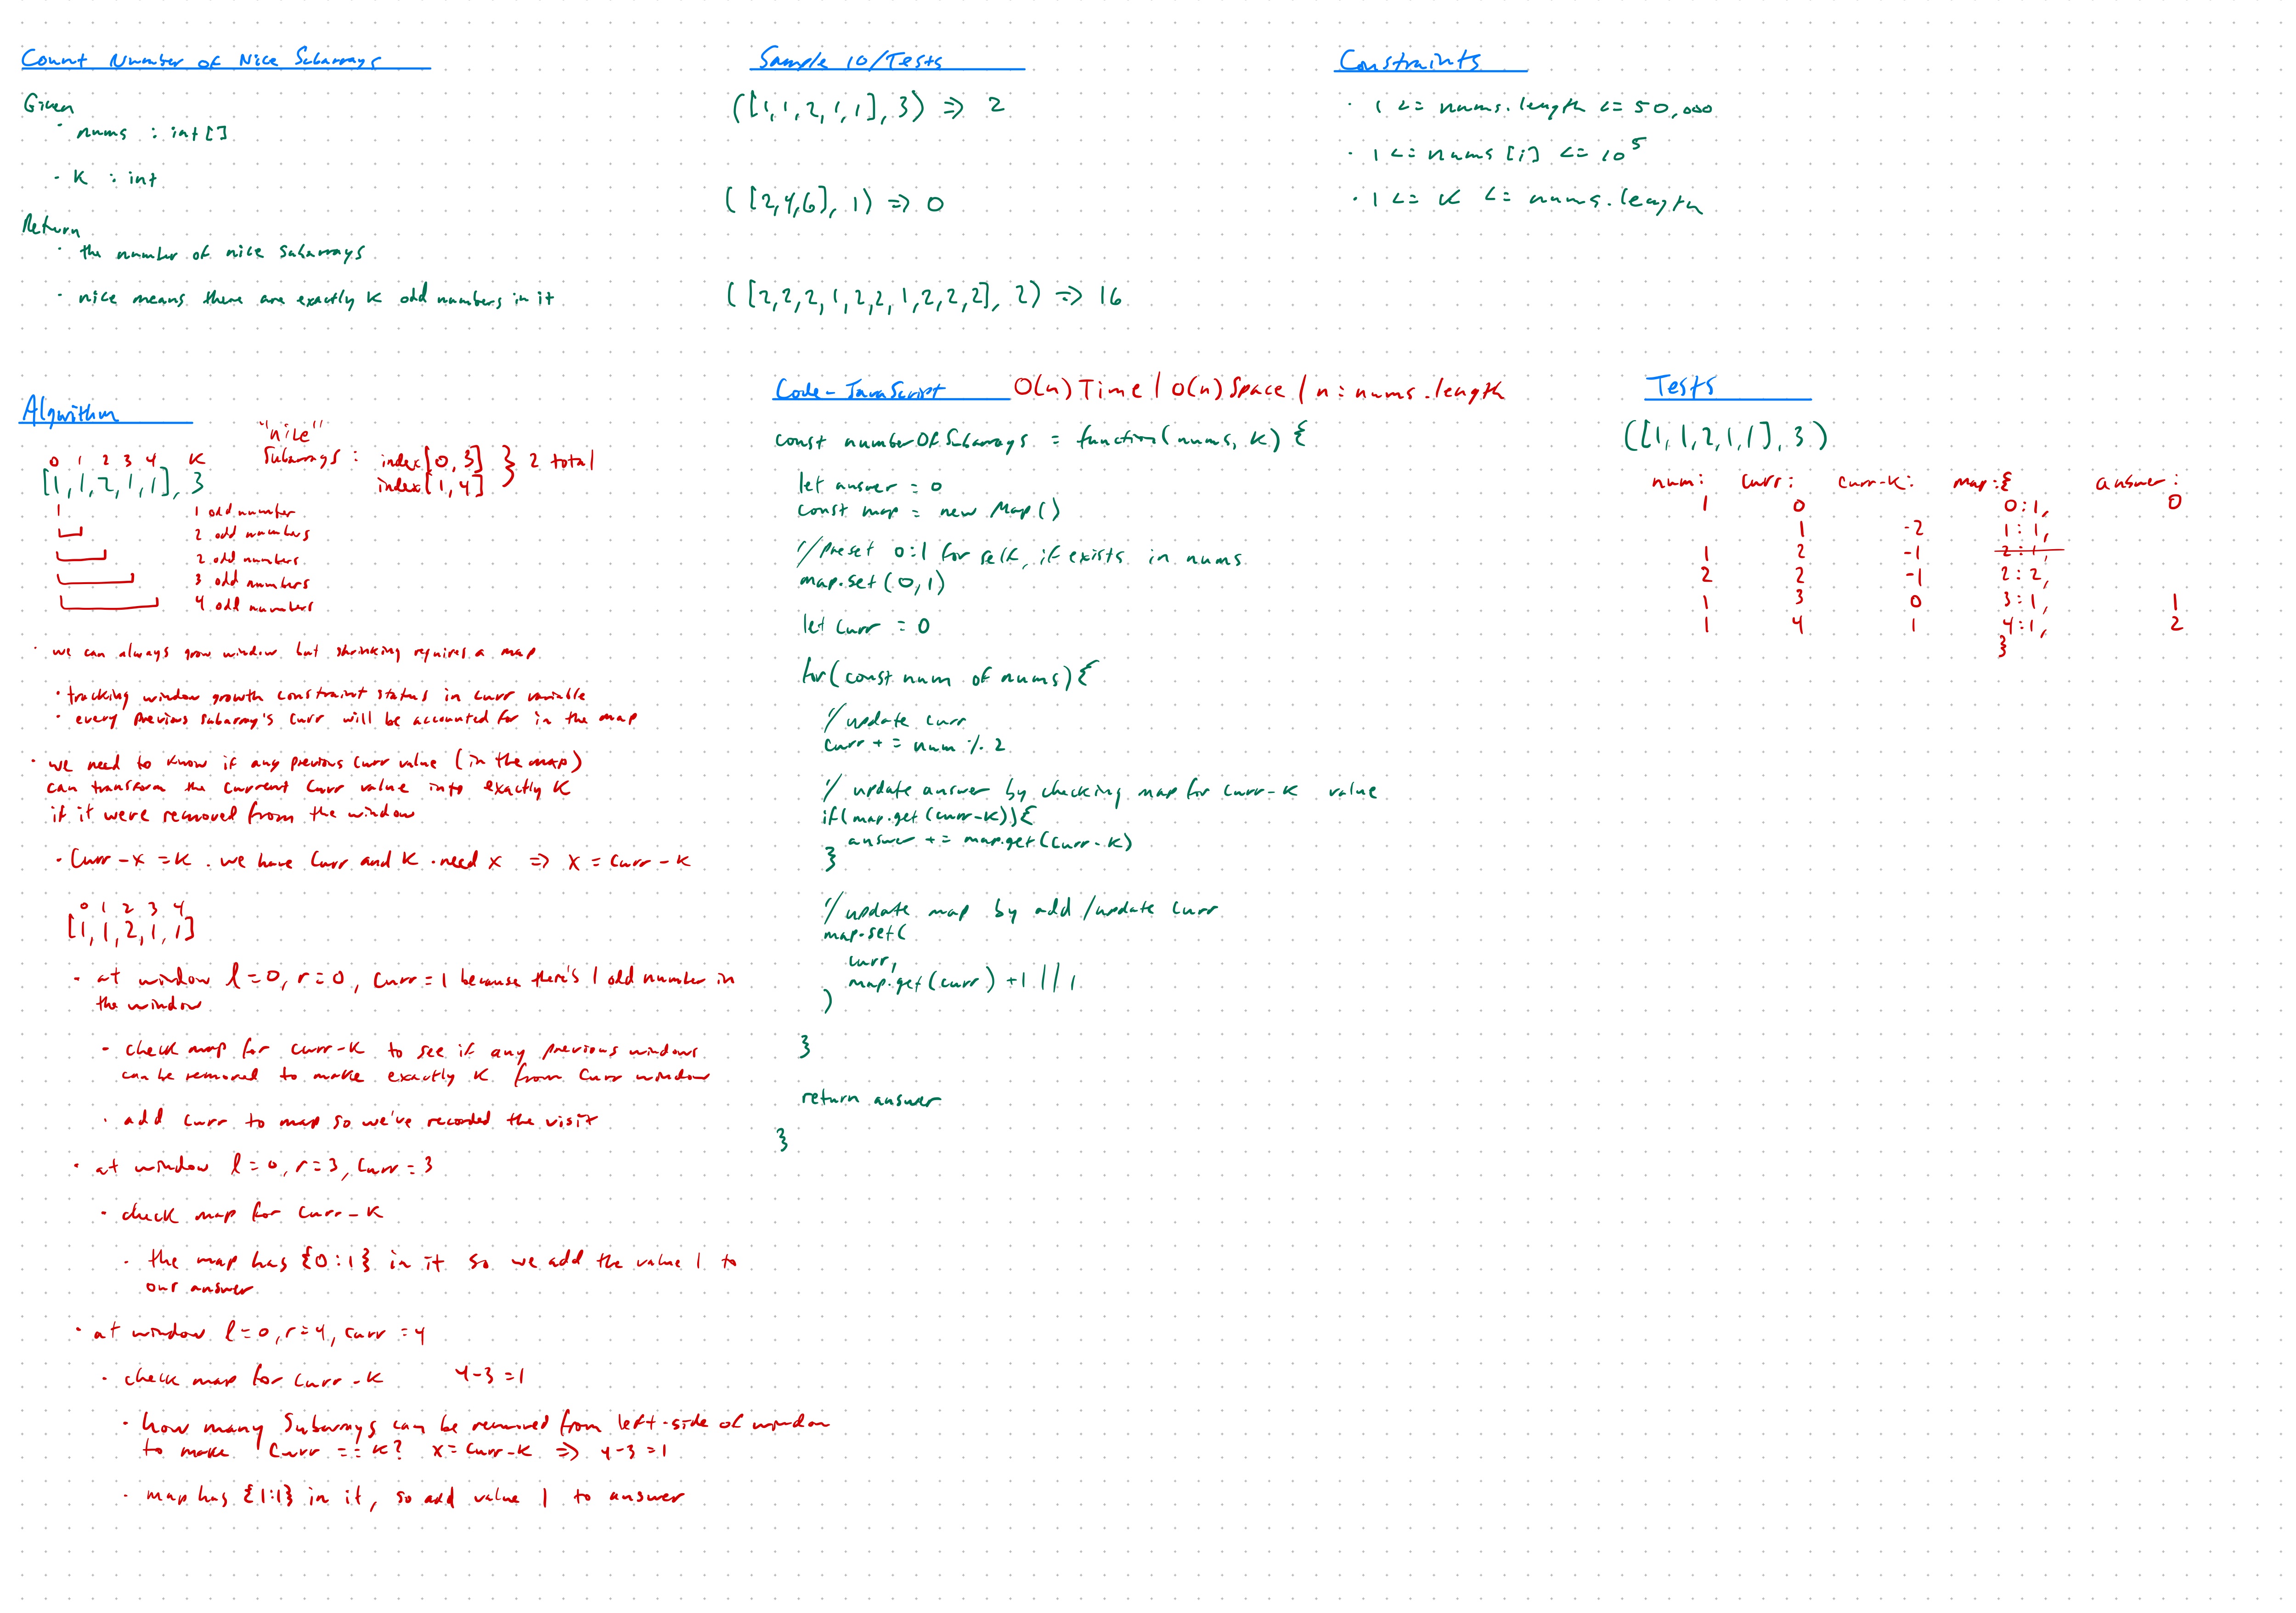 Count Number of Nice Subarrays
Given
· nums : int[]
· K : int
Return
· the number of nice subarrays
· nice means there are exactly K odd numbers in it
Sample IO/Tests
([1,1,2,1,1], 3) => 2
([2,4,6], 1) => 0
([2,2,2,1,2,2,1,2,2,2], 2) => 16
Constraints
· 1 <= nums.length <= 50,000
· 1 <= nums[i] <= 10^5
· 1 <= K <= nums.length
Algorithm
"nice"
Subarrays : index[0,3] } 2 total
index[1,4]
0 1 2 3 4 K
[1,1,2,1,1], 3
1 odd number
2 odd numbers
2 odd numbers
3 odd numbers
4 odd numbers
· we can always grow window but shrinking requires a map
· tracking window growth constraint status in curr variable
· every previous subarray's curr will be accounted for in the map
· we need to know if any previous curr value (in the map)
can transform the current curr value into exactly K
if it were removed from the window
· Curr - x = K . we have curr and K . need x => x = curr - K
0 1 2 3 4
[1,1,2,1,1]
· at window l=0, r=0, curr=1 because there's 1 odd number in
the window
- check map for curr-K to see if any previous windows
can be removed to make exactly K from curr window
· add curr to map so we've recorded the visit
· at window l=0, r=3, curr=3
· check map for curr-K
· the map has {0:1} in it so we add the value 1 to
our answer
· at window l=0, r=4, curr=4
· check map for curr-K 4-3=1
· how many subarrays can be removed from left-side of window
to make curr == K? x=curr-K => 4-3=1
· map has {1:1} in it, so add value 1 to answer
Code - JavaScript O(n) Time | O(n) Space | n = nums.length
const numberOfSubarrays = function(nums, K) {
let answer = 0
const map = new Map()
// preset 0:1 for self, if exists in nums
map.set(0,1)
let curr = 0
for(const num of nums){
// update curr
curr += num % 2
// update answer by checking map for curr-K value
if(map.get(curr-K)){
answer += map.get(curr-K)
}
// update map by add/update curr
map.set(
curr,
map.get(curr) +1 || 1
)
}
return answer
}
Tests
([1,1,2,1,1], 3)
num: curr: curr-K: map:{ answer:
1 0 0:1, 0
1 -2 1:1,
1 2 -1 2:1,
2 2 -1 2:2,
1 3 0 3:1, 1
1 4 1 4:1, 2
}